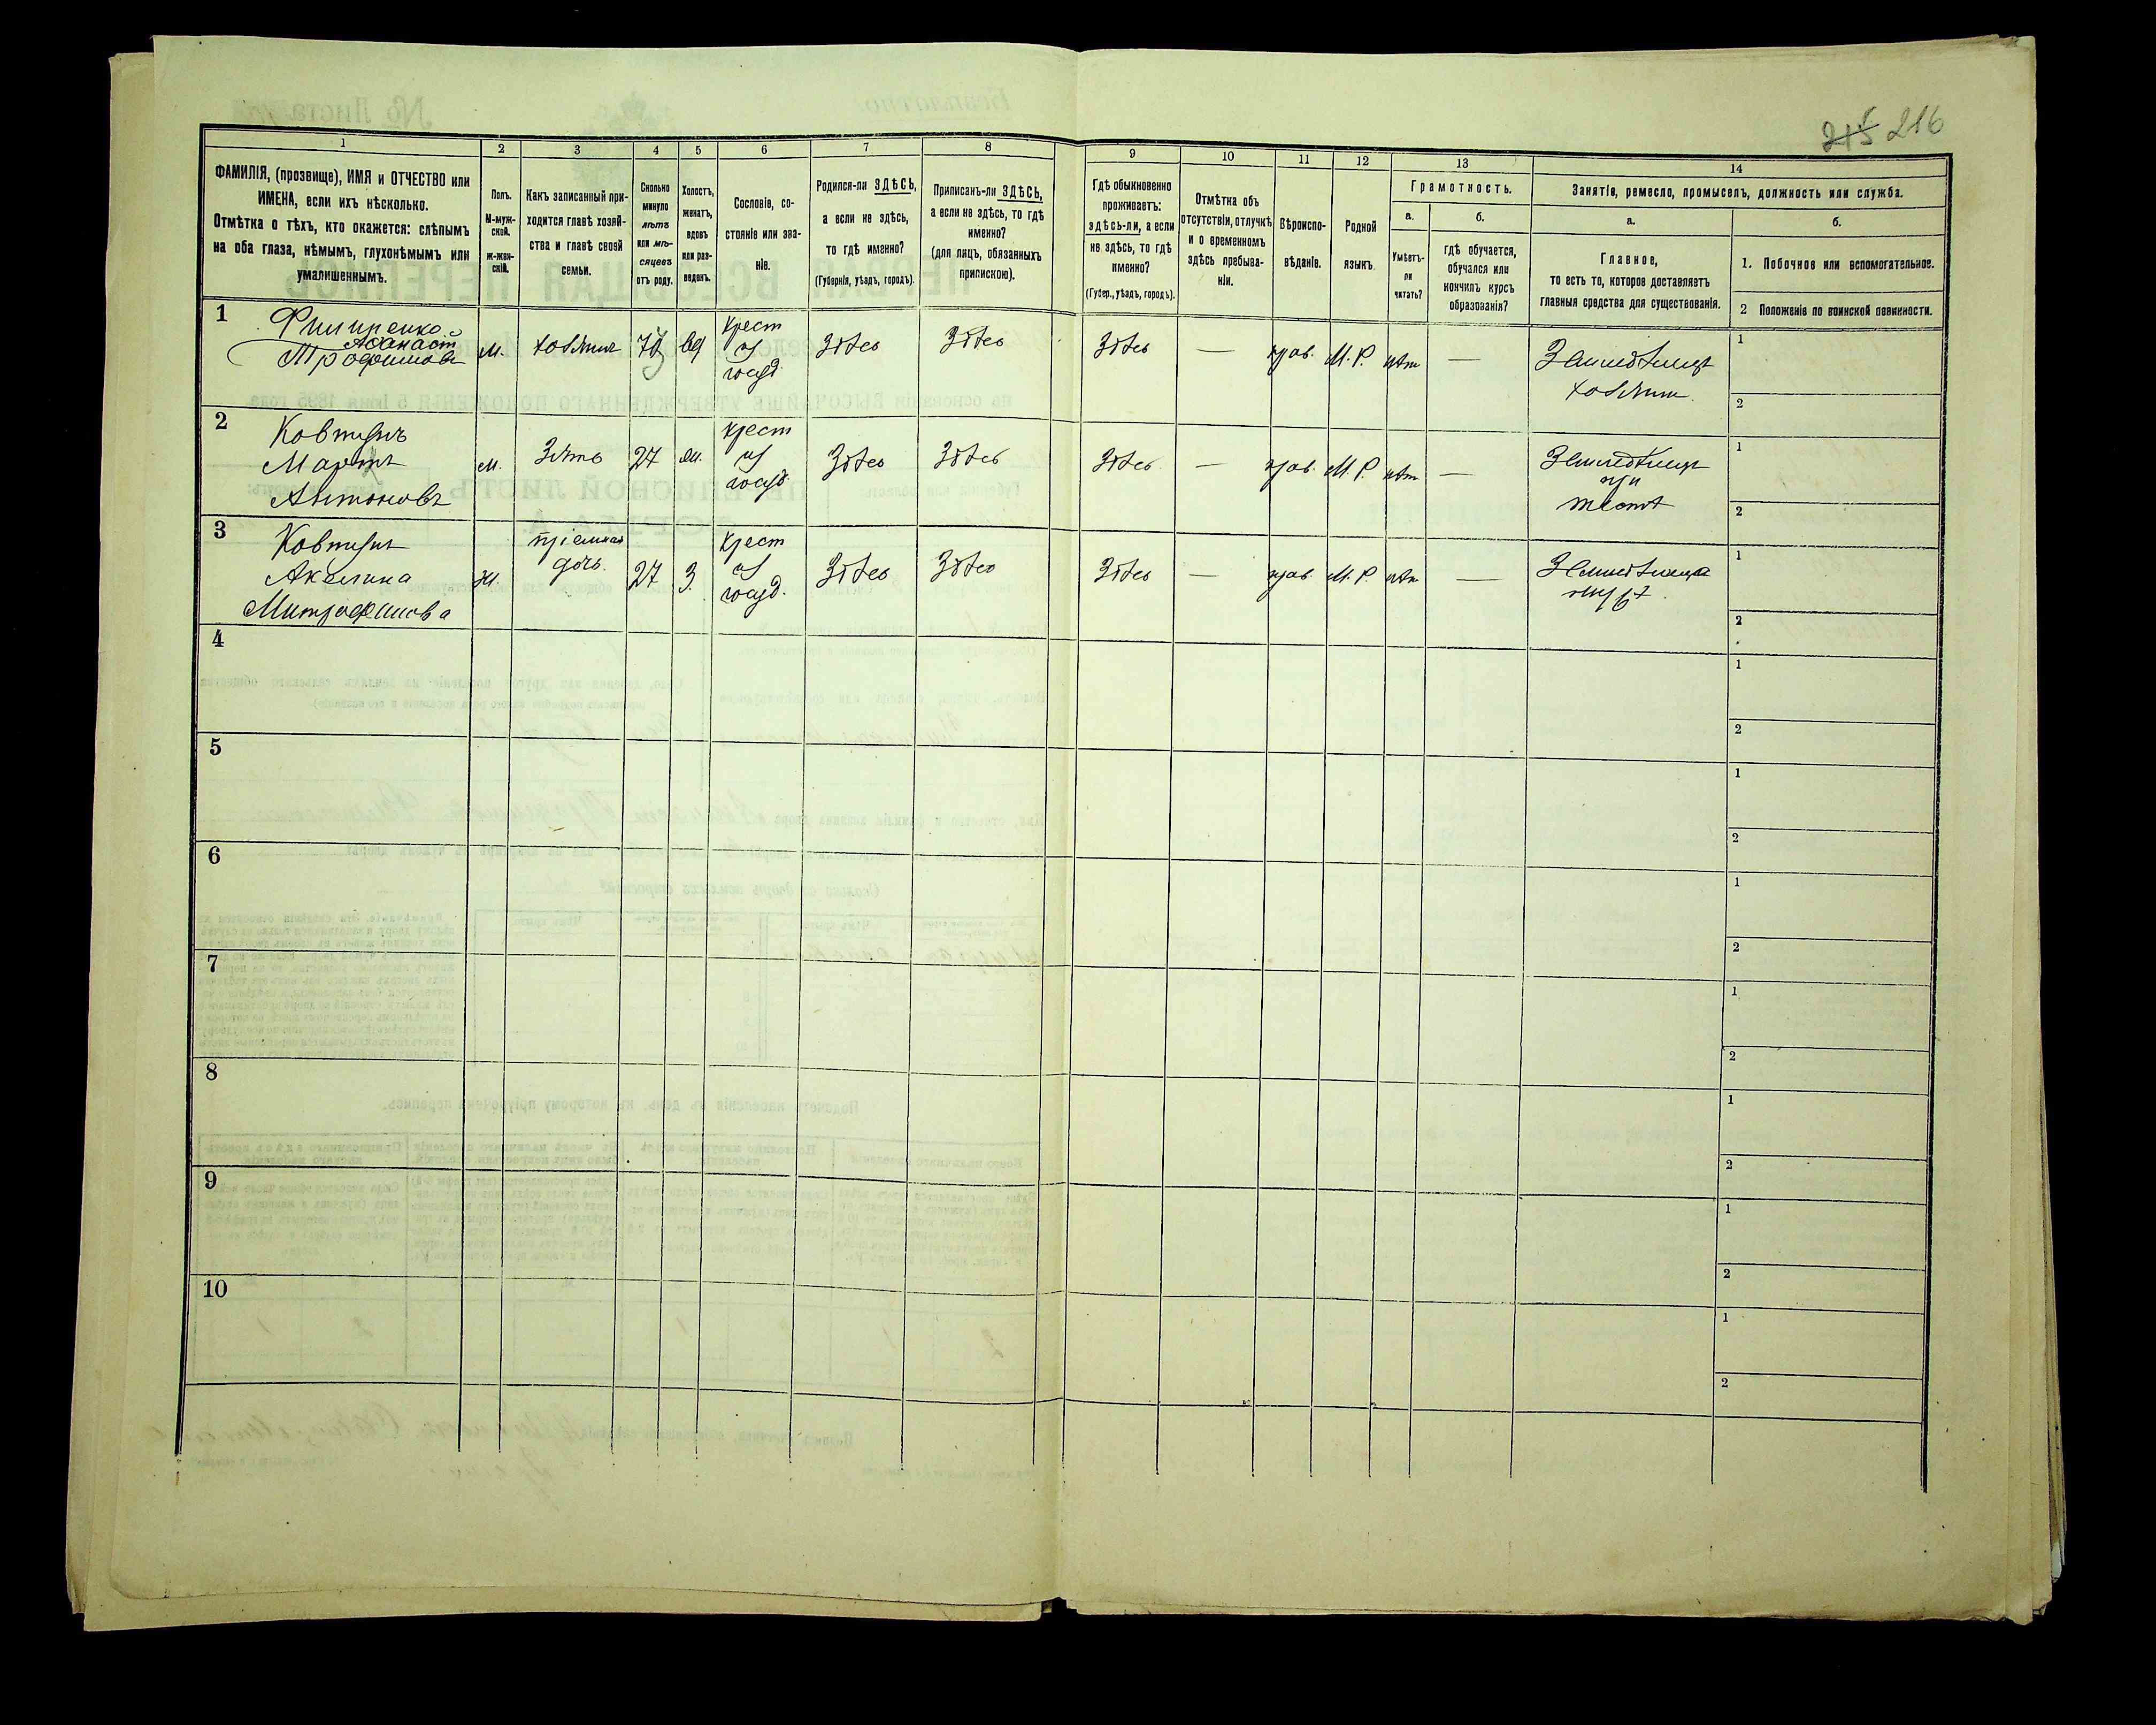 215 216
1
2
3
4
5
6
7
8
9
10
11
12
13
14
ФАМИЛІЯ, (прозвище), ИМЯ и ОТЧЕСТВО или
ИМЕНА, если ихъ нѣсколько.
Отмѣтка о тѣхъ, кто окажется: слѣпымъ
на оба глаза, нѣмымъ, глухонѣмымъ или
умалишеннымъ.
Полъ.
М-муж-
ской.
ж-жен-
скій.
Какъ записанный при-
ходится главѣ хозяй-
ства и главѣ своей
семьи.
Сколько
минуло
лѣтъ
или мѣ-
сяцевъ
отъ роду.
Холостъ,
женатъ,
вдовъ
или раз-
веденъ.
Сословіе, со-
стояніе или зва-
ніе.
Родился-ли ЗДѢСЬ,
а если не здѣсь,
то гдѣ именно?
(Губернія, уѣздъ, городъ).
Приписанъ-ли ЗДѢСЬ,
а если не здѣсь, то гдѣ
именно?
(для лицъ, обязанныхъ
припискою).
Гдѣ обыкновенно
проживаетъ:
здѣсь-ли, а если
не здѣсь, то гдѣ
именно?
(Губер., уѣздъ, городъ).
Отмѣтка объ
отсутствіи, отлучкѣ
и о временномъ
здѣсь пребыва-
ніи.
Вѣроиспо-
вѣданіе.
Родной
языкъ.
Грамотность.
а.
Умѣетъ-
ли
читать?
б.
гдѣ обучается,
обучался или
кончилъ курсъ
образованія?
Занятіе, ремесло, промыселъ, должность или служба.
а.
Главное,
то есть то, которое доставляетъ
главныя средства для существованія.
б.
1. Побочное или вспомогательное.
2 Положеніе по воинской повинности.
1
Филипенко
Афанасій
Трофимовъ
м.
хозяинъ
вд
крест
из
госуд.
здѣсь
здѣсь
здѣсь
—
прав.
М. Р.
нѣт
—
Земледѣлецъ
хозяин.
1
2
2
Ковтунъ
Мартъ
Антоновъ
м.
Зять
27
жн.
крест
из
госуд.
здѣсь
здѣсь
здѣсь
—
прав.
М. Р.
нѣт
—
Земледѣлецъ
при
тестѣ
1
2
3
Ковтунъ
Акелина
Митрофанова
ж.
пріемная
дочь.
27
З.
крест
из
госуд.
здѣсь
здѣсь
здѣсь
—
прав.
М. Р.
нѣт
—
Земледѣлица
1
2
4
1
2
5
1
2
6
1
2
7
1
2
8
1
2
9
1
2
10
1
2